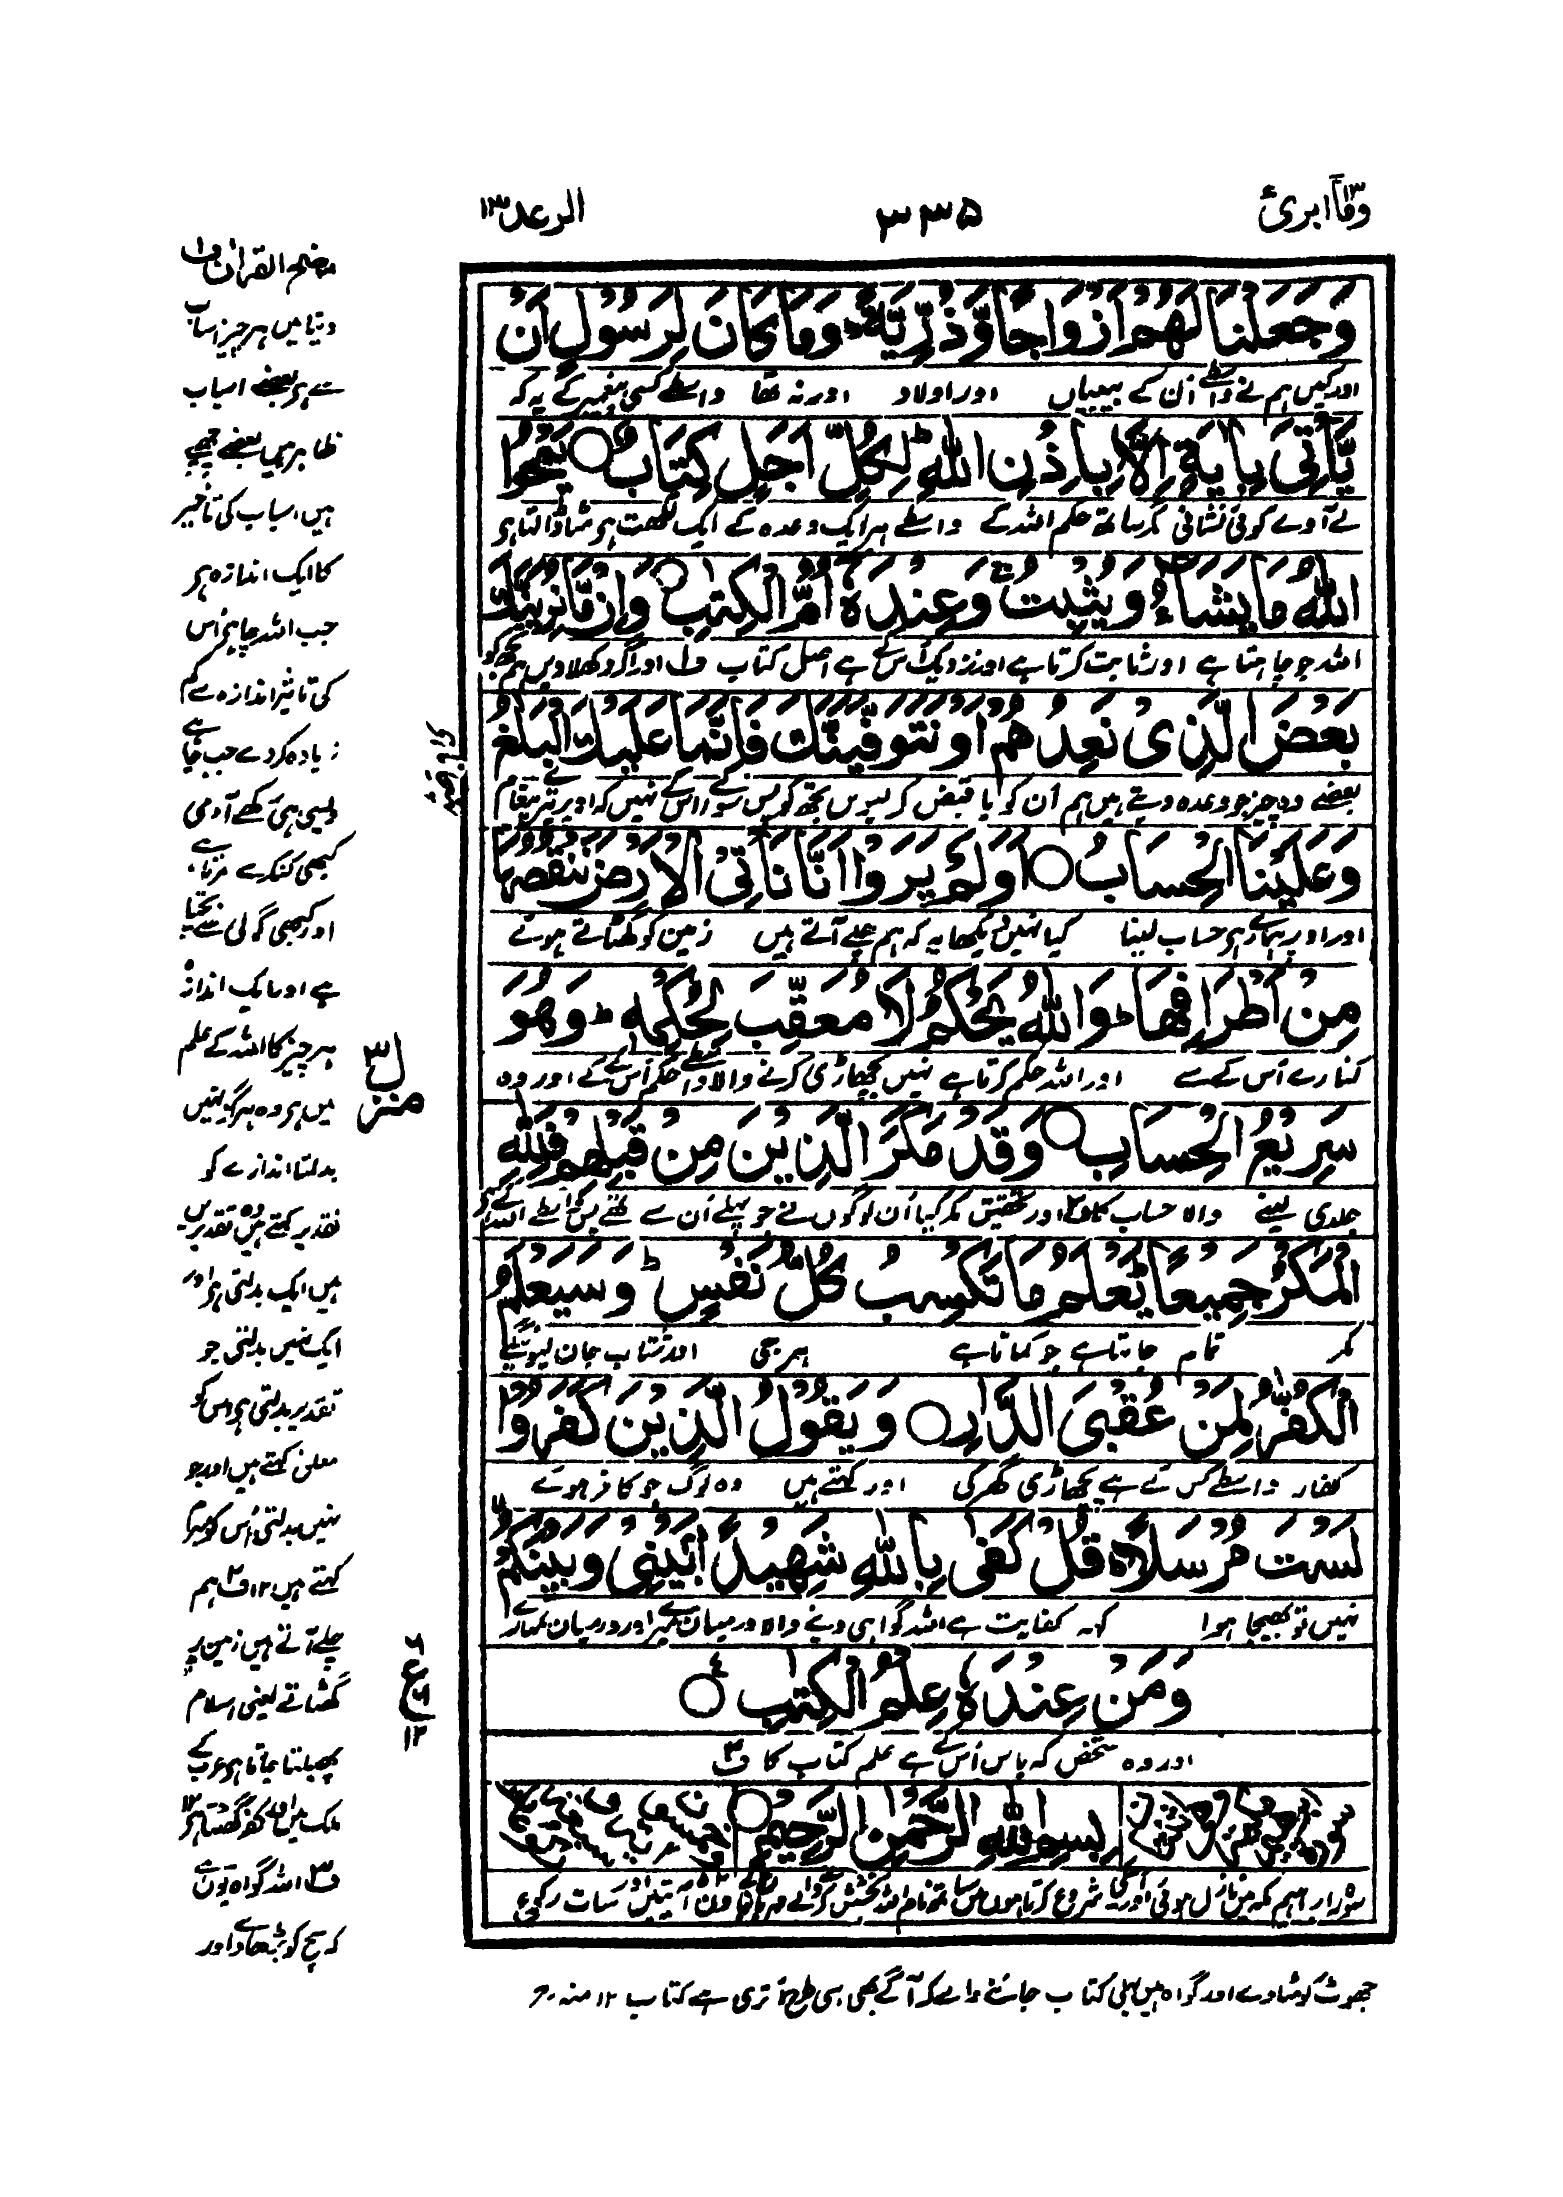 وماابرئ ١٣
٣٣۵
الرعد ١٣
وَجَعَلْنَا لَهُمْ اَزْوَاجًا وَّذُرِّيَّةً ؕ وَمَا كَانَ لِرَسُوْلٍ اَنْ
اور کیں ہم نے واسطے اُن کے بیبیاں اور اولاد اور نہ تھا واسطے کسی پیغمبر کے یہ کہ
يَّاْتِيَ بِاٰيَةٍ اِلَّا بِاِذْنِ اللّٰهِ ؕ لِكُلِّ اَجَلٍ كِتَابٌ ○ يَمْحُوا
لے آوے کوئی نشانی مگر ساتھ حکم اللہ کے واسطے ہر ایک وعدہ کے ایک لکھت ہی مٹا ڈالتا ہی
اللّٰهُ مَا يَشَآءُ وَيُثْبِتُ ۚ وَعِنْدَهٗۤ اُمُّ الْكِتٰبِ ○ وَاِنْ مَّا نُرِيَنَّكَ
اللہ جو چاہتا ہے اور ثابت کرتا ہے اور نزدیک اُس کے ہے اصل کتاب ف١ اور اگر دکھلا دیں ہم تجھ کو
بَعْضَ الَّذِيْ نَعِدُهُمْ اَوْ نَتَوَفَّيَنَّكَ فَاِنَّمَا عَلَيْكَ الْبَلٰغُ
بعضے وہ چیز جو وعدہ دیتے ہیں ہم اُن کو یا قبض کر لیویں تجھ کو پس سوا اس کے نہیں کہ اوپر تیرے پیغام
وَعَلَيْنَا الْحِسَابُ ○ اَوَلَمْ يَرَوْا اَنَّا نَاْتِي الْاَرْضَ نَنْقُصُهَا
اور اوپر ہمارے ہی حساب لینا کیا نہیں دیکھا یہ کہ ہم چلے آتے ہیں زمین کو گھٹاتے ہوئے
مِنْ اَطْرَافِهَا ؕ وَاللّٰهُ يَحْكُمُ لَا مُعَقِّبَ لِحُكْمِهٖ ؕ وَهُوَ
کنارے اُس کے سے اور اللہ حکم کرتا ہے نہیں پچھاڑی کرنے والا واسطے حکم اُس کے کے اور وہ
سَرِيْعُ الْحِسَابِ ○ وَقَدْ مَكَرَ الَّذِيْنَ مِنْ قَبْلِهِمْ فَلِلّٰهِ
جلدی لینے والا حساب کا ف٢ اور تحقیق مکر کیا اُن لوگوں نے جو پہلے اُن سے تھے پس واسطے اللہ کے ہی
الْمَكْرُ جَمِيْعًا ؕ يَعْلَمُ مَا تَكْسِبُ كُلُّ نَفْسٍ ؕ وَسَيَعْلَمُ
مکر تمام جانتا ہے جو کماتا ہے ہر جی اور شتاب جان لیویں گے
الْكُفّٰرُ لِمَنْ عُقْبَى الدَّارِ ○ وَيَقُوْلُ الَّذِيْنَ كَفَرُوْا
کفار واسطے کس کے ہے پچھاڑی گھر کی اور کہتے ہیں وہ لوگ جو کافر ہوئے
لَسْتَ مُرْسَلًا ؕ قُلْ كَفٰى بِاللّٰهِ شَهِيْدًۢا بَيْنِيْ وَبَيْنَكُمْ
نہیں تو بھیجا ہوا کہہ کفایت ہے اللہ گواہی دینے والا درمیان میرے اور درمیان تمہارے
وَمَنْ عِنْدَهٗ عِلْمُ الْكِتٰبِ ○
اور وہ شخص کہ پاس اُس کے ہے علم کتاب کا ف٣
بِسْمِ اللّٰهِ الرَّحْمٰنِ الرَّحِيْمِ ○
سورہ ابراہیم مکہ میں نازل ہوئی اور شروع کرتا ہوں میں ساتھ نام اللہ بخشش کرنے والے مہربان کے باون آیتیں اور سات رکوع
موضح القرآن ف١
دنیا میں ہر چیز اسباب
سے ہی بعضے اسباب
ظاہر ہیں بعضے چھپے
ہیں اسباب کی تاثیر
کا ایک اندازہ ہی
جب اللہ چاہے اُس
کی تاثیر اندازہ سے کم
زیادہ کردے جب چاہے
ویسی ہی رکھے آدمی
کبھی کنکر سے مرتا ہے
اور کبھی گولی سے بچتا
ہے اور ایک اندازہ
ہر چیز کا اللہ کے علم
میں ہی وہ ہرگز نہیں
بدلتا اندازے کو
تقدیر کہتے ہیں یہ دو تقدیریں
ہیں ایک بدلتی ہی اور
ایک نہیں بدلتی جو
تقدیر بدلتی ہی اس کو
معلق کہتے ہیں اور جو
نہیں بدلتی اُس کو مبرم
کہتے ہیں ١٢ ف٢ ہم
چلے آتے ہیں زمین پر
گھٹاتے یعنی اسلام
پھیلتا جاتا ہی عرب کے
ملک میں اور کفر گھٹتا ہی ١٢
ف٣ اللہ گواہ یوں ہے
کہ سچ کو بڑھاوے اور
منزل ٣
ع
٦
٦
١٢
جھوٹ کو مٹاوے اور گواہ ہیں پہلی کتاب جاننے والے کہ آگے بھی اسی طرح اُتری ہے کتاب ١٢ منہ رح